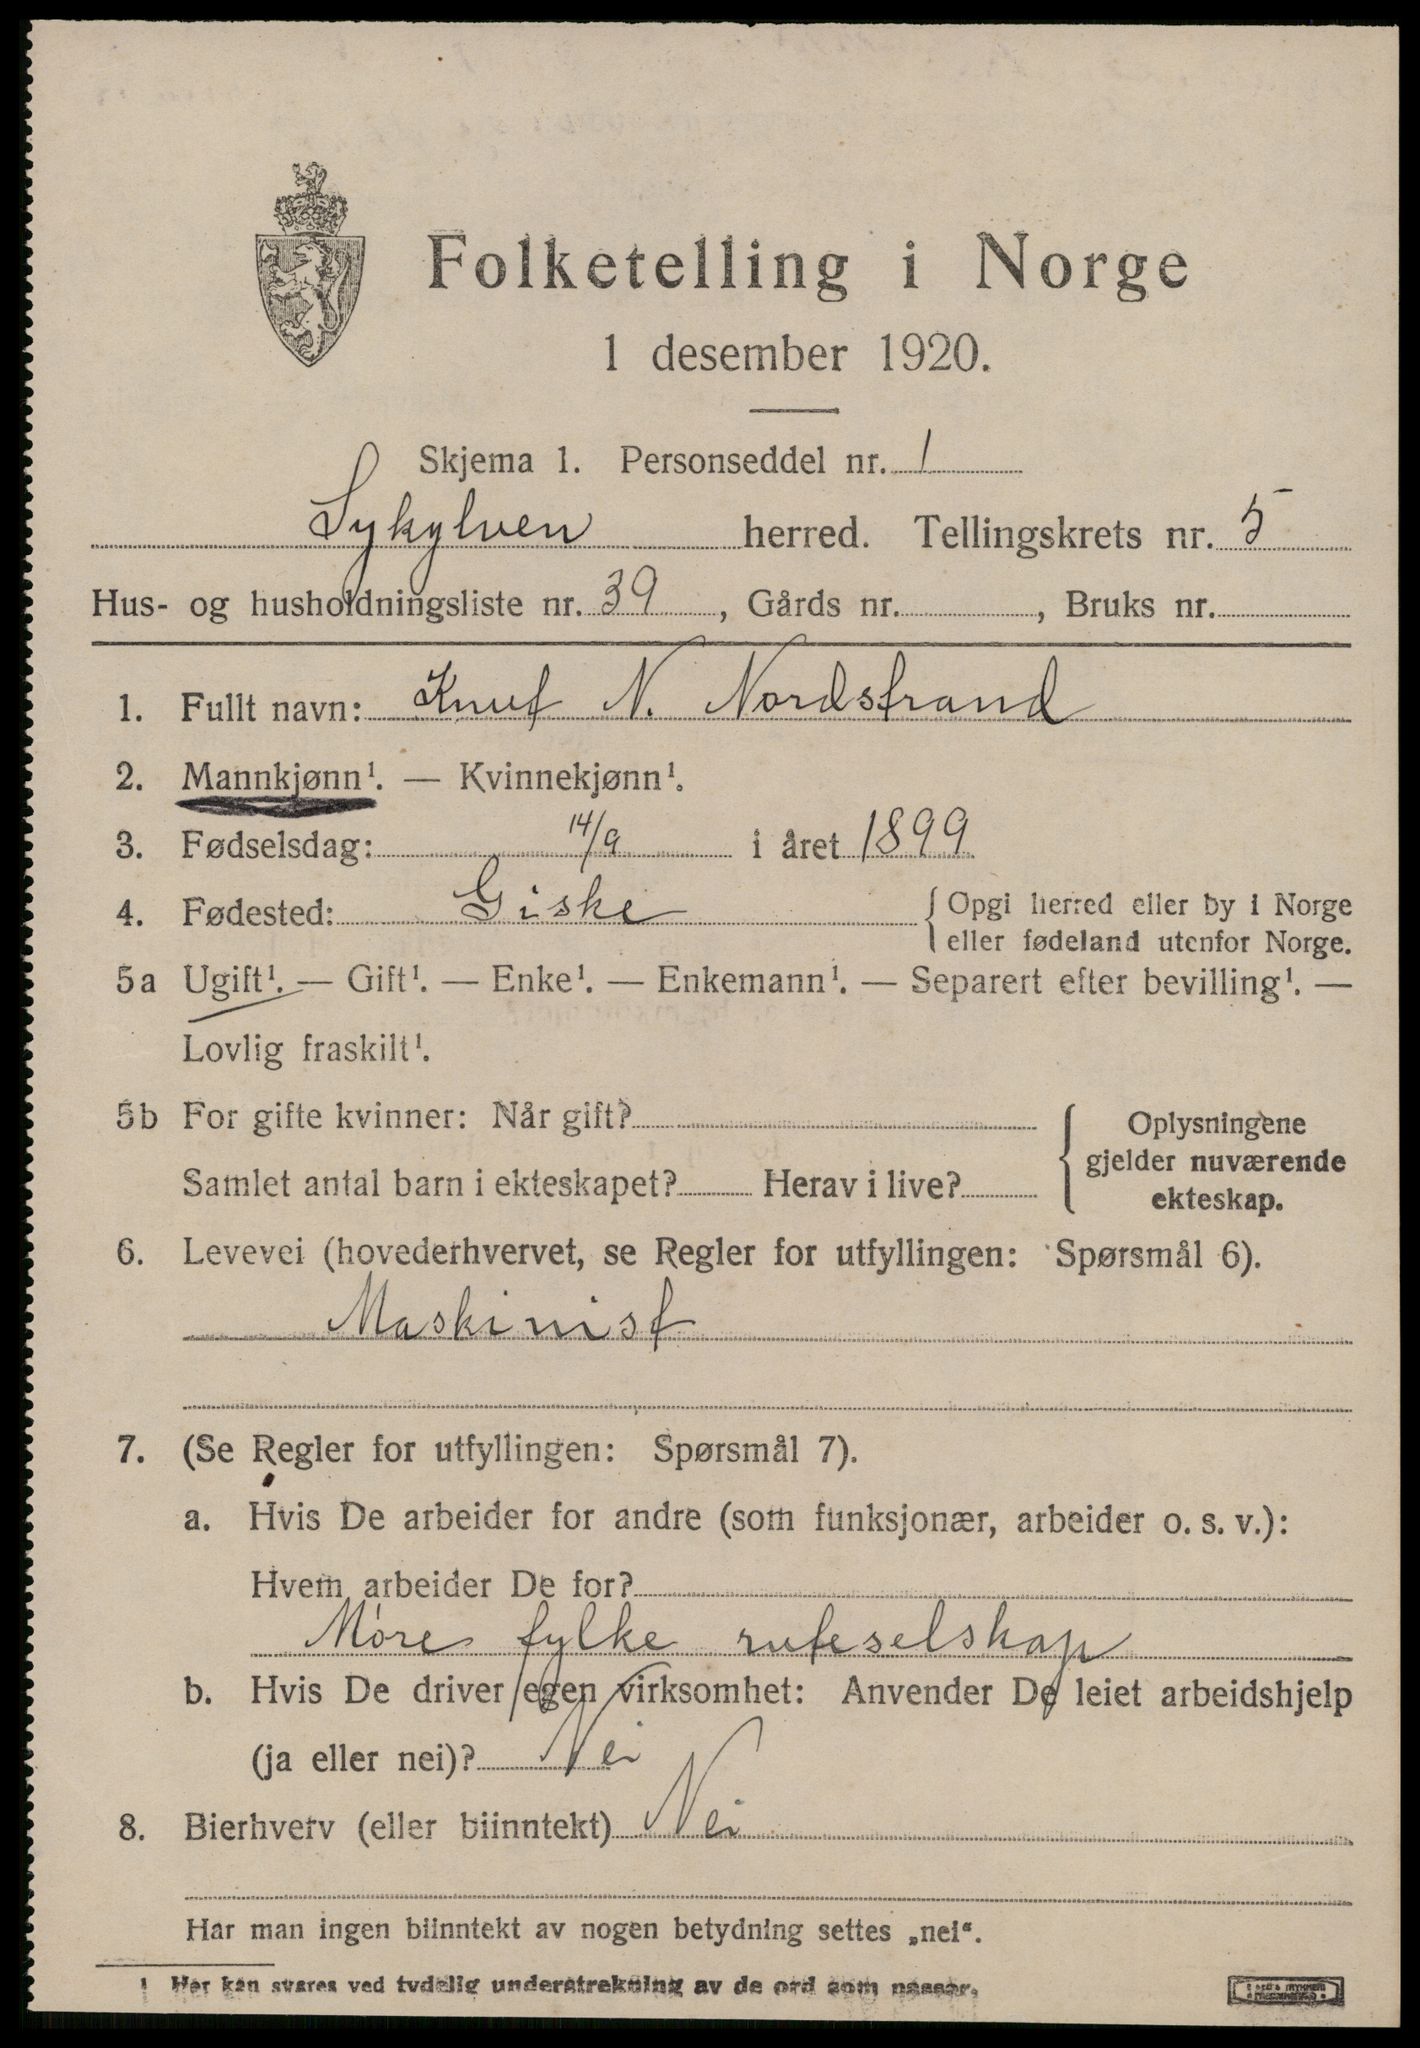 Folketelling i Norge
1 desember 1920.
Skjema 1. Personseddel nr. 1
Sykylven herred. Tellingskrets nr. 5
Hus- og husholdningsliste nr. 39, Gårds nr. , Bruks nr.
1. Fullt navn: Knut N. Nordstrand
2. Mannkjønn¹. — Kvinnekjønn¹.
3. Fødselsdag: 14/9 i året 1899
4. Fødested: Giske { Opgi herred eller by i Norge
eller fødeland utenfor Norge.
5a Ugift¹. — Gift¹. — Enke¹. — Enkemann¹. — Separert efter bevilling¹. —
Lovlig fraskilt¹.
5b For gifte kvinner: Når gift?
Samlet antal barn i ekteskapet? Herav i live?
Oplysningene
gjelder nuværende
ekteskap.
6. Levevei (hovederhvervet, se Regler for utfyllingen: Spørsmål 6).
Maskinist
7. (Se Regler for utfyllingen: Spørsmål 7).
a. Hvis De arbeider for andre (som funksjonær, arbeider o. s. v.):
Hvem arbeider De for?
Møre fylke ruteselskap
b. Hvis De driver egen virksomhet: Anvender De leiet arbeidshjelp
(ja eller nei)? Nei
8. Bierhverv (eller biinntekt) Nei
Har man ingen biinntekt av nogen betydning settes „nei“.
1 Her kan svares ved tydelig understrekning av de ord som passer.